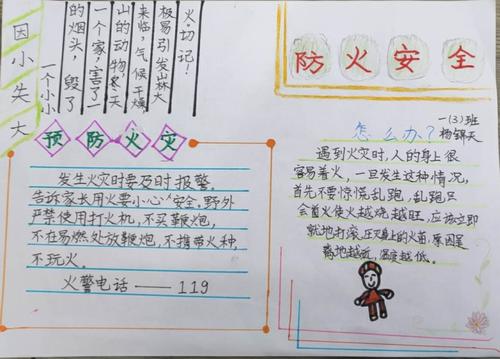 因小失大
一个小小
的烟头,毁了
一个家,害了一
山的动物,冬天
来临,气候干燥,
极易引发山林大
火,切记!
防火安全
预防火灾
发生火灾时要及时报警。
告诉家长用火要小心安全。野外
严禁使用打火机,不买鞭炮,
不在易燃处放鞭炮,不携带火种,
不玩火。
火警电话——119
一(3)班
杨锦天
怎么办?
遇到火灾时,人的身上很
容易着火,一旦发生这种情况,
首先不要惊慌乱跑,乱跑只
会首火使火越烧越旺,应该立即
就地打滚,压灭身上的火苗,原因是
离地越近,温度越低。